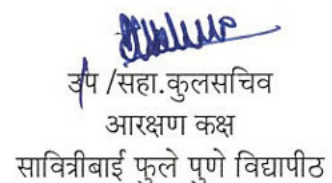 उप /सहा.कुलसचिव
आरक्षण कक्ष
सावित्रीबाई फुले पुणे विद्यापीठ